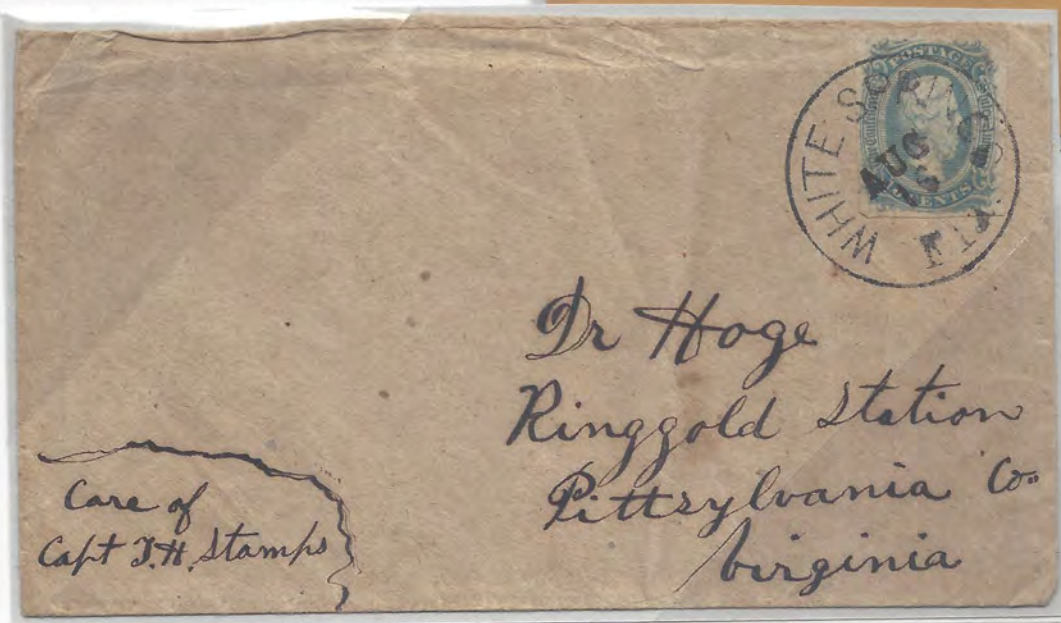 POSTAGE
WHITE SPRINGS
AUG
CENTS
FLA
Dr Hoge
Ringgold Station
Pittsylvania Co.
Virginia
Care of
Capt T.H. Stamps